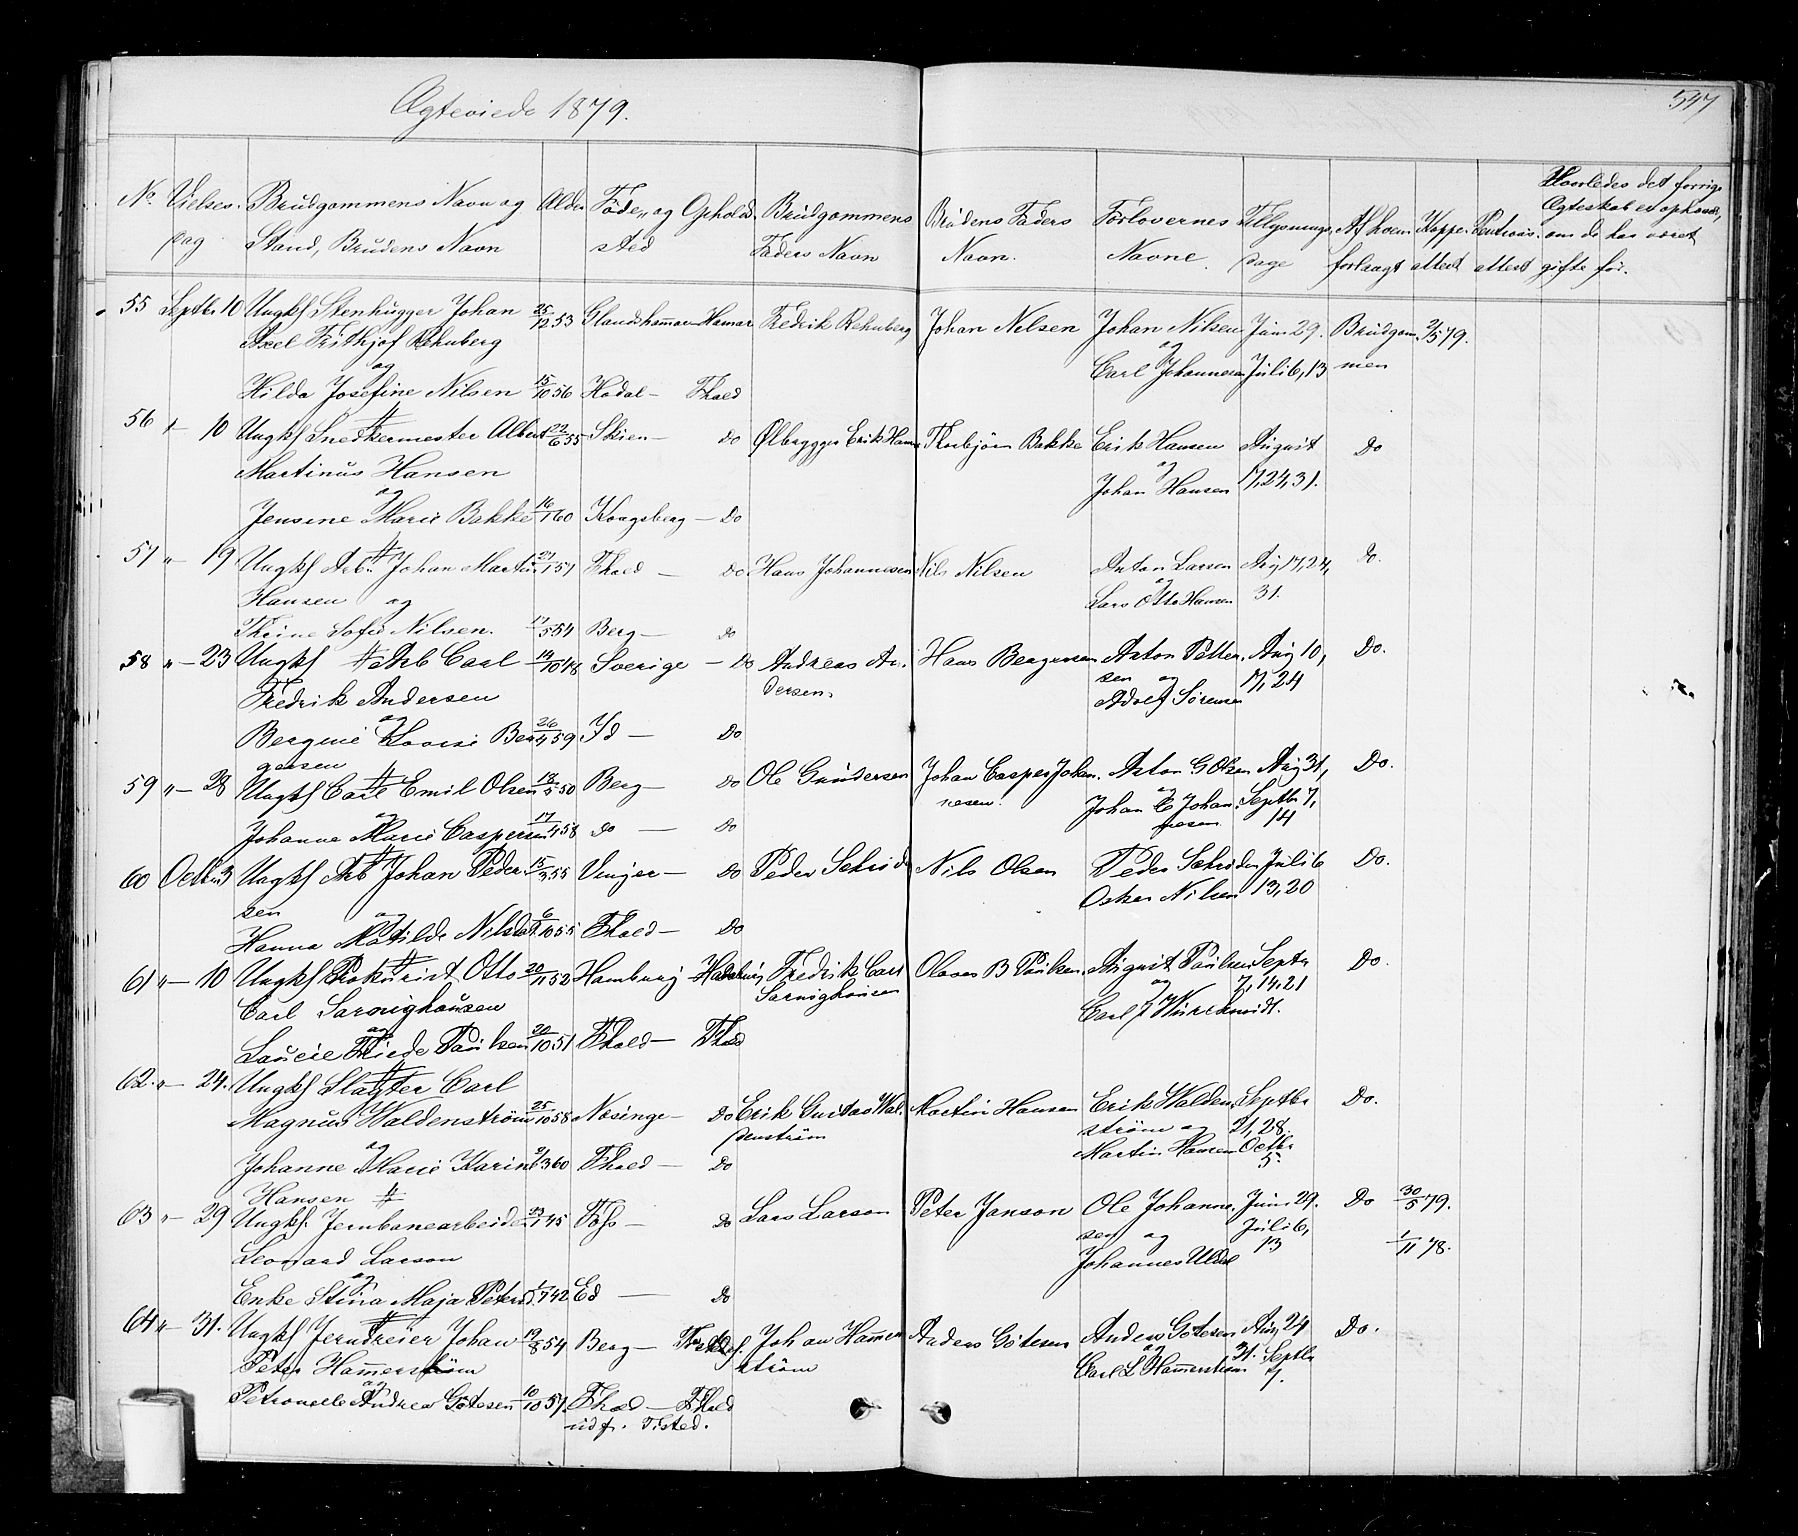 Ægteviede 1879.
547
No Vielses- dag
Brudgommens Navn og Stand, Brudens Navn
Alder
Føde- og Ophold sted
Brudgommens Faders Navn
Brudens Faders Navn.
Forlovernes Navne.
Tillysnings dage
Af hvem forlangt
Koppe attest
attest
Hvorledes det forrige Ægteskab er ophævet, om de har været gifte før.
55 Septbr 10 Ungkf Stenhugger Johan 25/12 53 Glandshammar Hamar Fredrik Rehnberg Johan Nelsen Johan Nilsen Juni 29. Brudgom- 2/5 79.
Axel Frithjof Rehnberg og Carl Johannesen Juli 6, 13 men
og
Hilda Josefine Nilsen 15/10 56 Hodal - Fhald
56 " 10 Ungkf Snedkermester Albert 22/6 55 Skien - Do Ølbrygger Erik Hansen Thorbjørn Bakke Erik Hansen August Do
Martinus Hansen og Johan Hansen 17, 24, 31.
og
Jensine Marie Bakke 16/1 60 Kongsberg - Do
57 " 19 Ungkf Arb. Johan Martin 27/1 57 Fhald - Do Hans Johannesen Nils Nilsen Anton Larsen Aug 17, 24, Do.
Hansen og og Lars Otto Hansen 31.
Thrine Sofie Nilsen. 17/5 54 Berg - Do
58 " - 23 Ungkf Arb Carl 14/10 48 Sverige - Do Andreas An- Hans Bergersen Anton Petter- Aug 10, Do.
Fredrik Andersen dersen. sen og Adolf Sørensen 17, 24
og
Bergine Lovise Ber 26/4 59 Id - Do
gersen
59 " - 28 Ungkf Carl Emil Olsen 18/5 50 Berg - Do Ole Gundersen Johan Casper Johan- Anton G Olsen Aug 31, Do.
og nesen. og Johan C Johan- Septbr 7,
Johanne Marie Caspersen 17/4 58 do - Do nesen 14
60 Octbr 3 Ungkf Arb Johan Peder 15/3 55 Vinger - Do Peder Schrøder Nils Olsen Peder Schrøder Juli 6 Do.
sen og Oskar Nilsen 13, 20
Hanna Matilde Nilsdat 6/10 55 Fhald - Do
61 " - 10 Ungkf Prokurist Otto 20/11 52 Hamburg - Fredrik Carl Olaves B Paulsen August Paulsen Septbr Do.
Carl Sarnighausen Sarnighausen og 7, 14, 21
og Carl J
Laurie Friede Paulsen 20/10 51 Fhald - Fhald
62. " - 24. Ungkf Slagter Carl
Magnus Waldenstrøm 25/10 58 Næsinge - Do Erik Gustav Wal- Martin Hansen Erik Walden- Septbr Do.
og denstrøm strøm og 21, 28.
Johanne Marie Karin 9/3 60 Fhald - Do Martin Hansen Octbr
Hansen 5.
63 " - 29 Ungkf. Jernbanearbeider 23/1 45 Foss - Do Lars Larson Peter Janson Ole Johanne- Juni 29. Do 30/5 79.
Leonard Larson sen og Juli 6,
og Johannes Uldal 13 1/11 78.
Enke Stina Maja Petersd. 1/7 42 Ed - Do
64 " - 31. Ungkf Jerndreier Johan 19/8 54 Berg - Johan Hammer Anders Götesen Anders Götesen Aug 24 Do.
Peter Hammerstrøm strøm og 31. Septbr
og Carl L Hammerstrøm 7.
Petronelle Andrea Götesen 10/10 57. Fhald - Fhald
udf. Tisted.